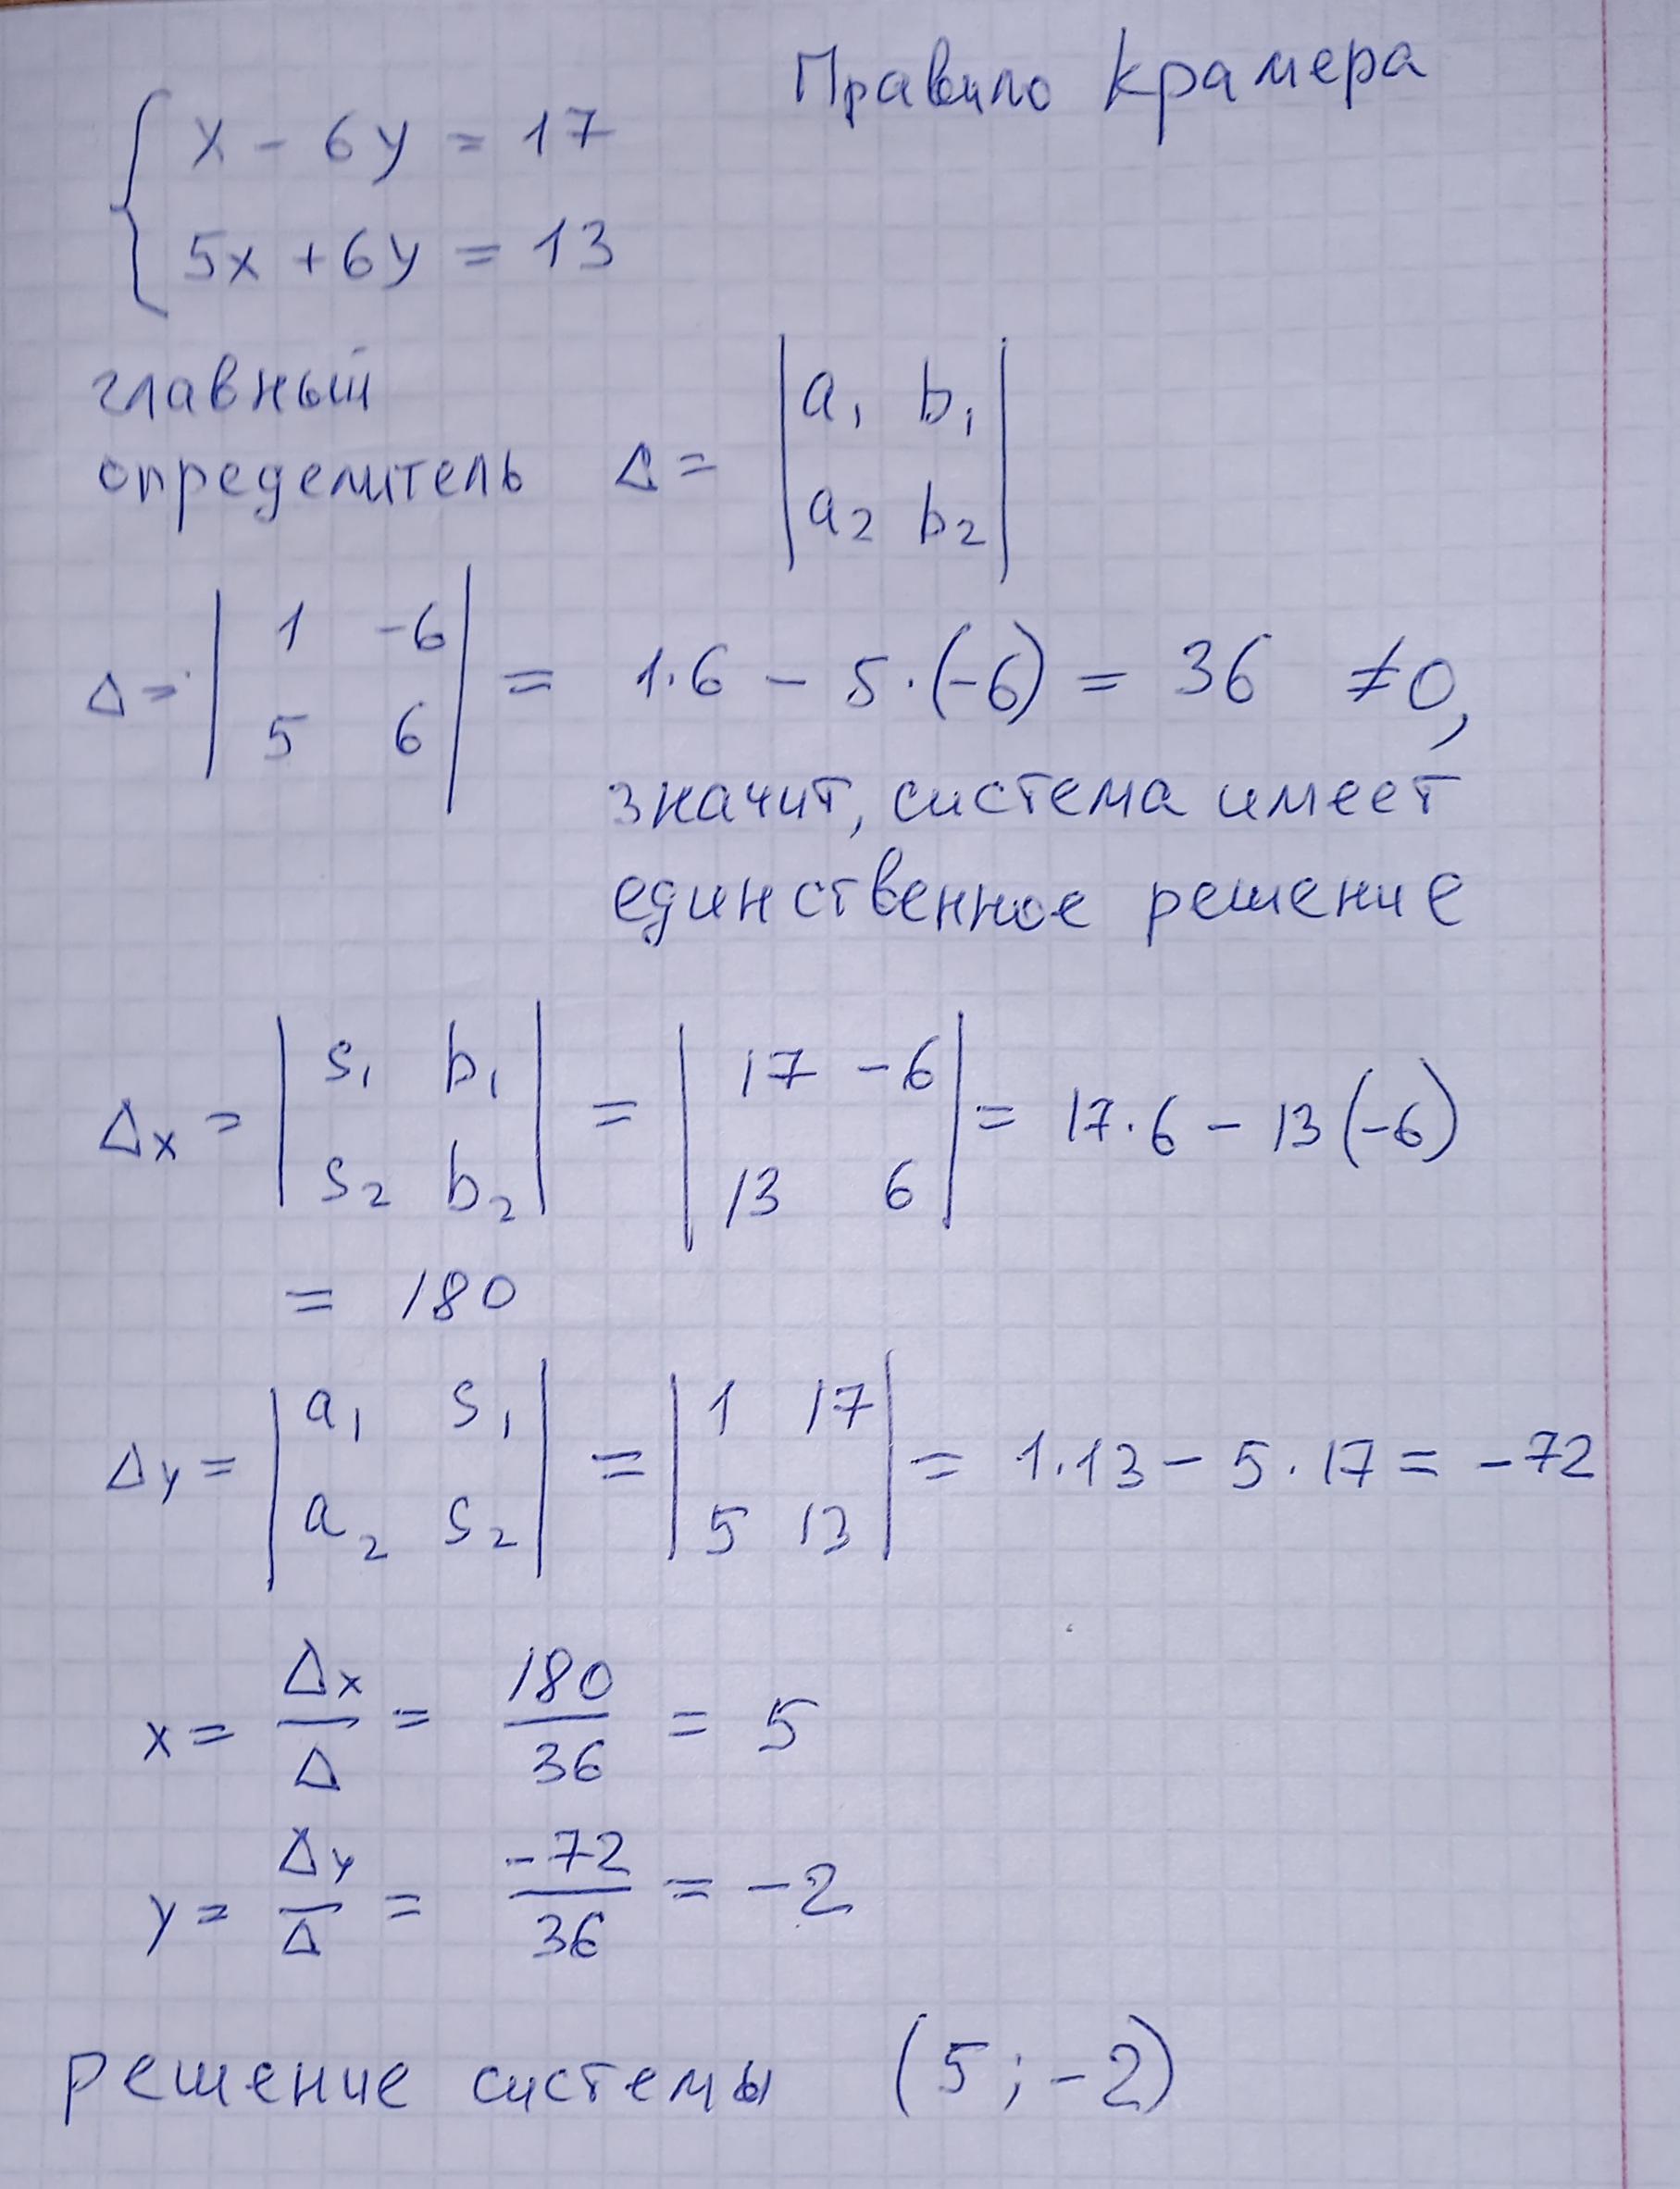 Правило Крамера
{ x - 6y = 17
5x + 6y = 13
главный
определитель Δ = | a₁ b₁ |
| a₂ b₂ |
Δ = | 1 -6 | = 1·6 - 5·(-6) = 36 ≠ 0,
| 5 6 |
значит, система имеет
единственное решение
Δx = | s₁ b₁ | = | 17 -6 | = 17·6 - 13(-6)
| s₂ b₂ | | 13 6 |
= 180
Δy = | a₁ s₁ | = | 1 17 | = 1·13 - 5·17 = -72
| a₂ s₂ | | 5 13 |
x = Δx/Δ = 180/36 = 5
y = Δy/Δ = -72/36 = -2
решение системы (5; -2)